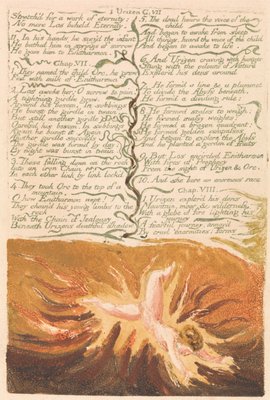 Urizen C. VII
Stretch'd for a work of eternity;
No more Los beheld Eternity.
11. In his hands he siez'd the infant
He bathed him in springs of sorrow
He gave him to Enitharmon.
Chap. VII.
1. They named the child Orc, he grew
Fed with milk of Enitharmon
2. Los awoke her; O sorrow & pain!
A tight'ning girdle grew,
Around his bosom. In sobbings
He burst the girdle in twain,
But still another girdle
Oppress'd his bosom, In sobbings
Again he burst it. Again
Another girdle succeeds
The girdle was form'd by day;
By night was burst in twain.
3. These falling down on the rock
Into an iron Chain
In each other link by link lock'd
4. They took Orc to the top of a
mountain.
O how Enitharmon wept!
They chain'd his young limbs to the
rock
With the Chain of Jealousy
Beneath Urizens deathful shadow
5. The dead heard the voice of the
child
And began to awake from sleep
All things heard the voice of the child
And began to awake to life.
6. And Urizen craving with hunger
Stung with the odours of Nature
Explor'd his dens around
7. He form'd a line & a plummet
To divide the Abyss beneath.
He form'd a dividing rule:
8. He formed scales to weigh;
He formed massy weights;
He formed a brazen quadrant;
He formed golden compasses
And began to explore the Abyss
And he planted a garden of fruits
9. But Los encircled Enitharmon
With fires of Prophecy
From the sight of Urizen & Orc.
10. And she bore an enormous race
Chap. VIII.
1. Urizen explor'd his dens
Mountain, moor, & wilderness,
With a globe of fire lighting his
journey
A fearful journey, annoy'd
By cruel enormities: forms